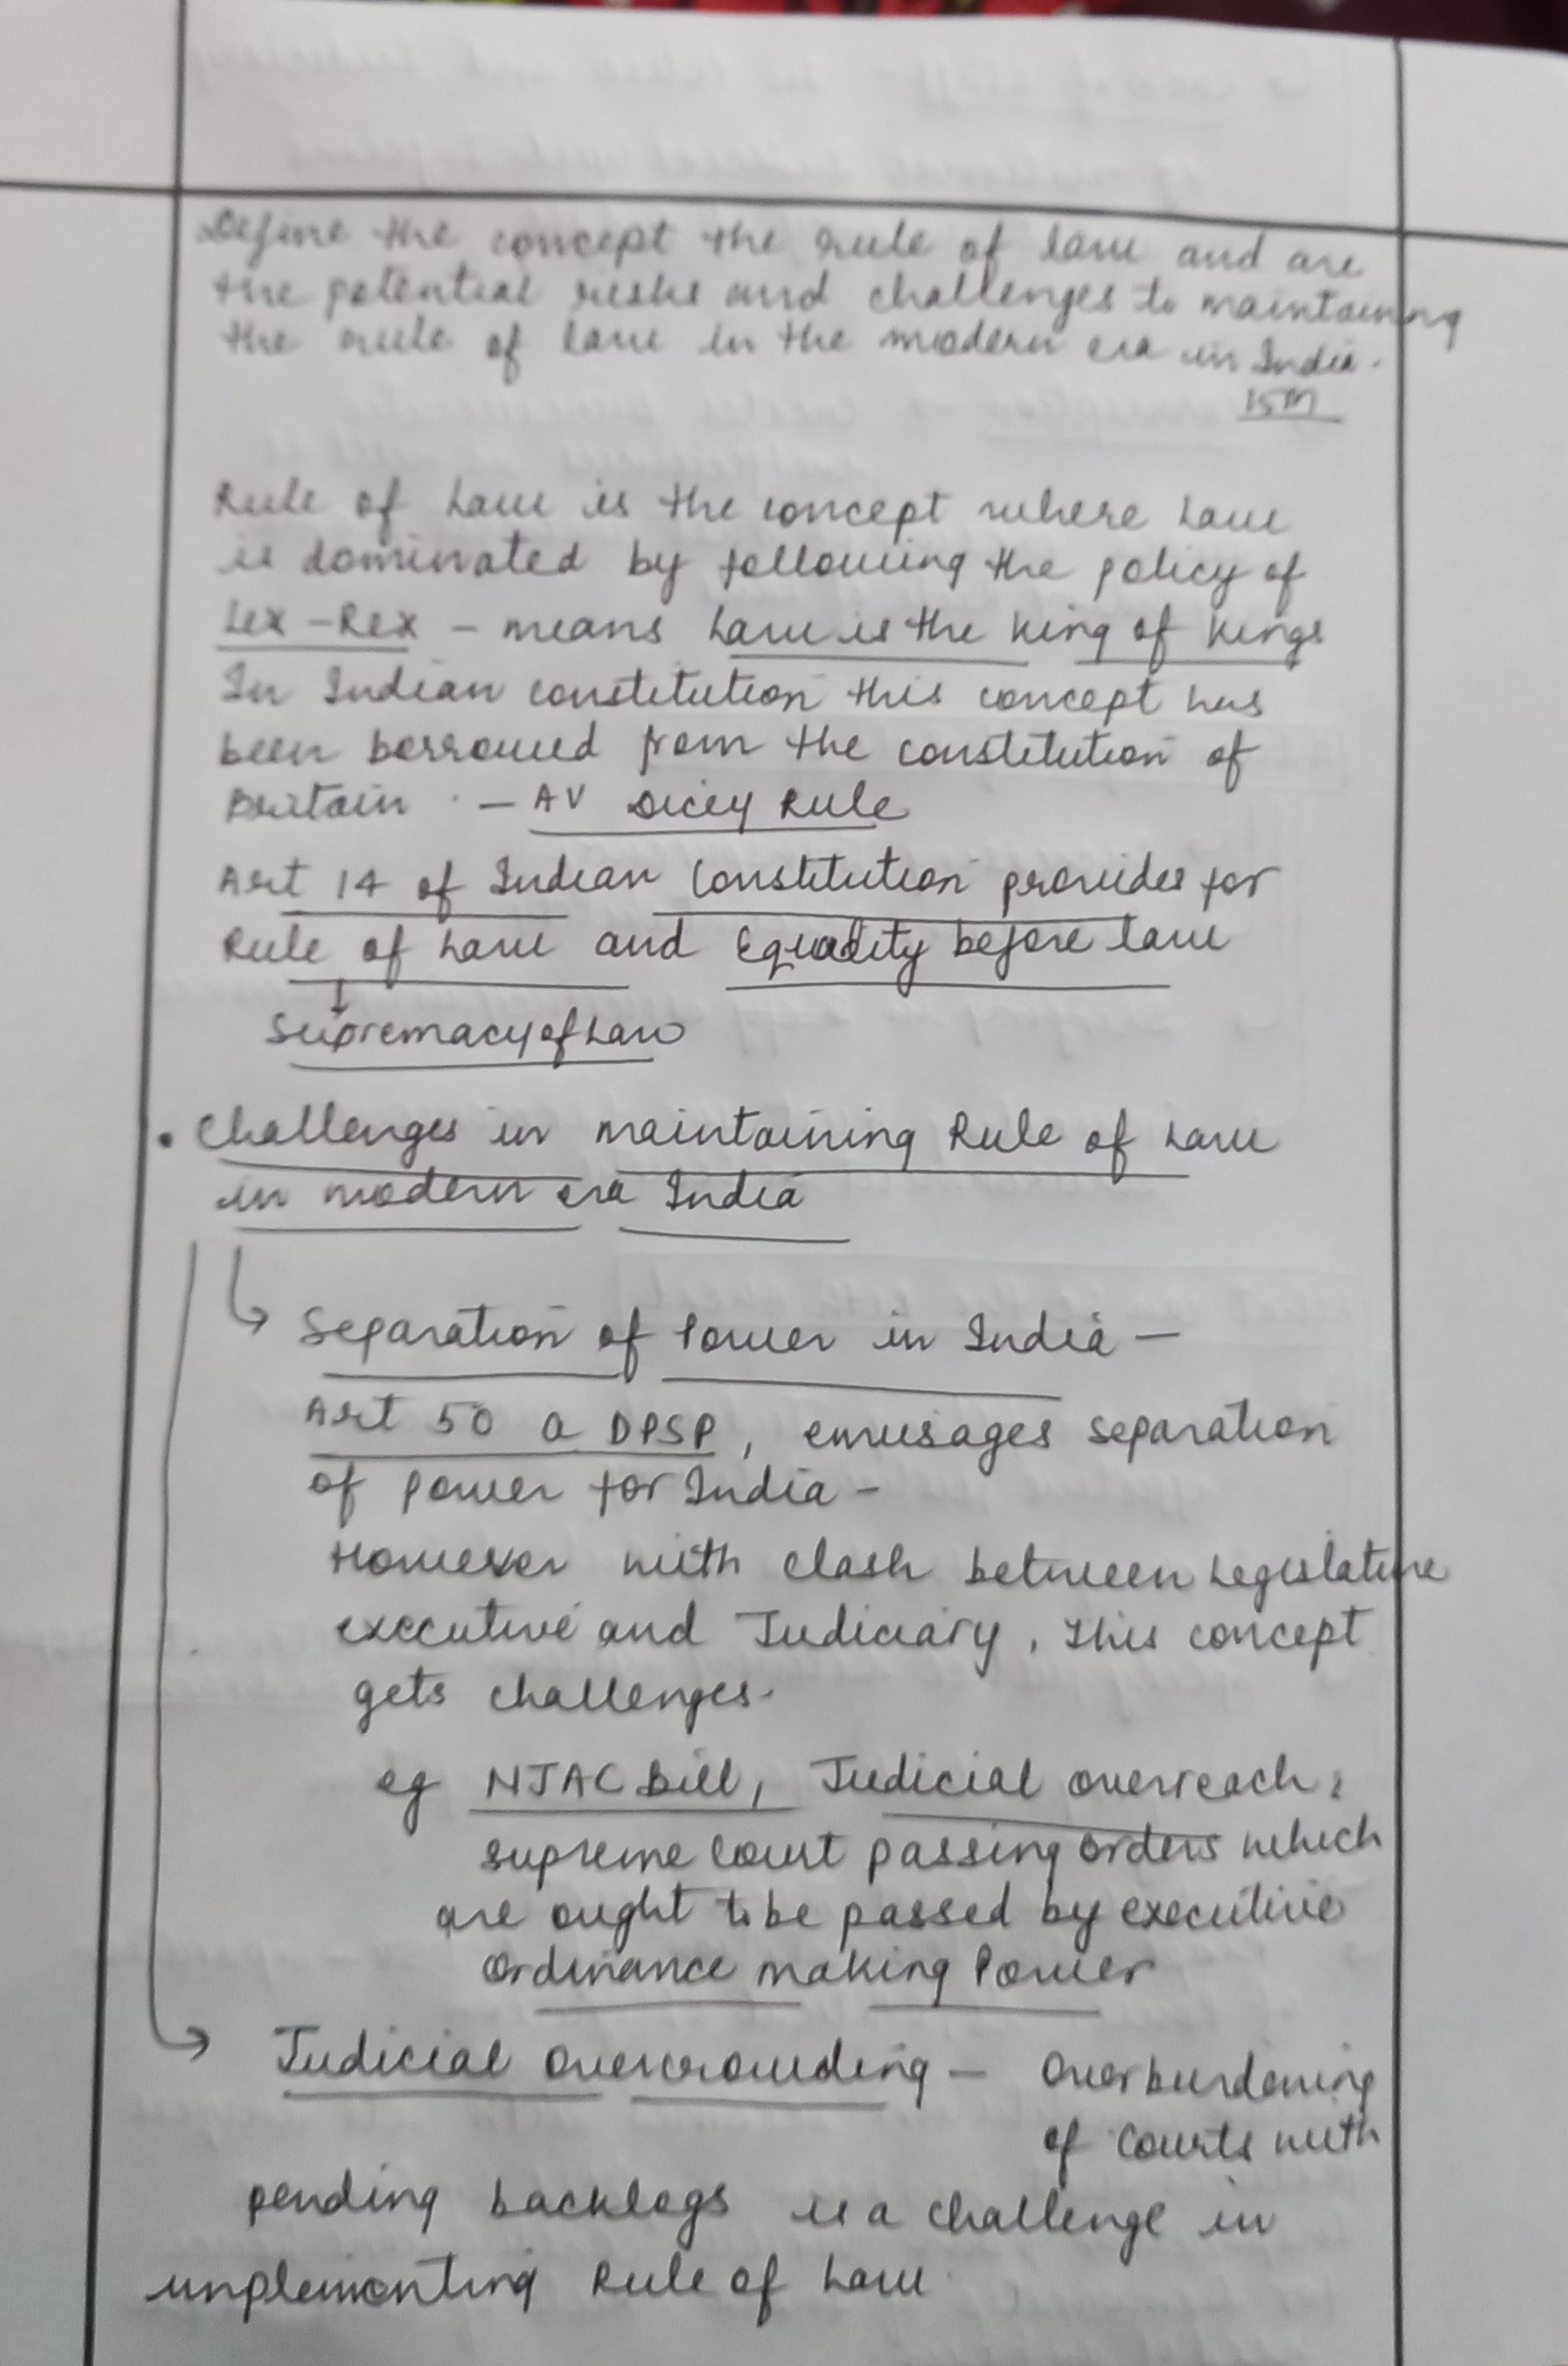 Define the concept the rule of law and are
the potential risks and challenges to maintaining
the rule of law in the modern era in India.
15M
Rule of Law is the concept where Law
is dominated by following the policy of
Lex-Rex - means Law is the king of kings
In Indian constitution this concept has
been borrowed from the constitution of
Britain - AV Dicey Rule
Art 14 of Indian Constitution provides for
Rule of Law and Equality before law
Supremacy of Law
• Challenges in maintaining Rule of Law
in modern era India
Separation of Power in India -
Art 50 a DPSP, envisages separation
of power for India -
However with clash between Legislature
executive and Judiciary, this concept
gets challenges.
eg NJAC Bill, Judicial overreach,
supreme court passing orders which
are ought to be passed by executive
Ordinance making Power
Judicial overcrowding - Overburdening
of Courts with
pending backlogs is a challenge in
implementing Rule of Law.